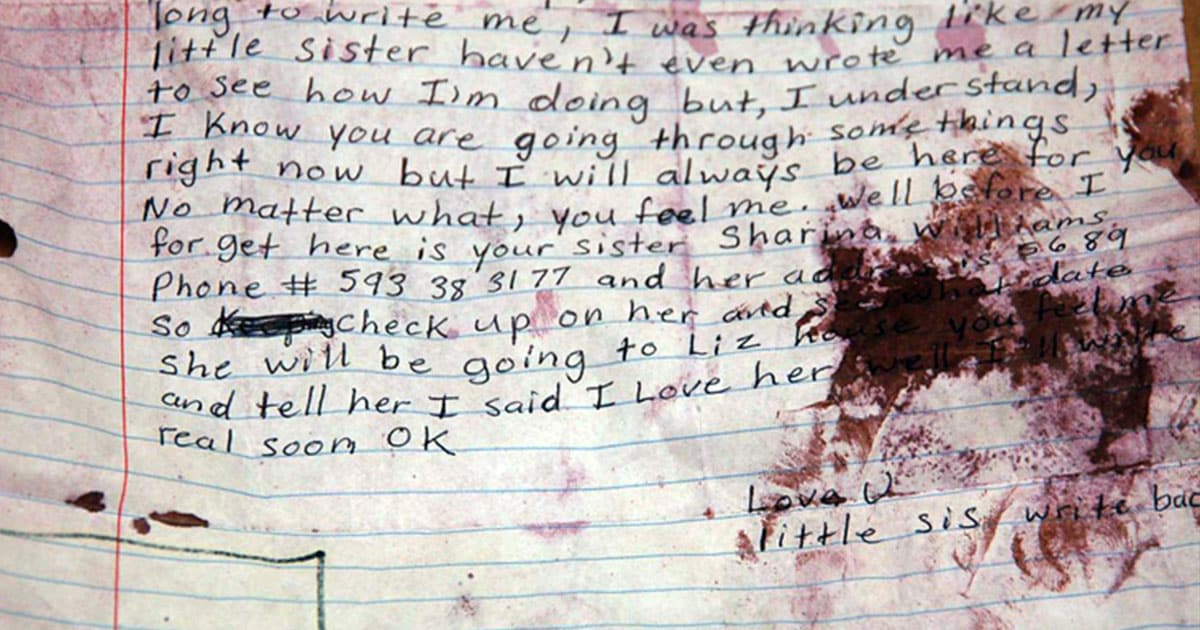 long to write me, I was thinking like my
little sister haven't even wrote me a letter
to see how I'm doing but, I understand,
I know you are going through some things
right now but I will always be here for you
No matter what, you feel me. Well before I
for get here is your sister Sharina Williams.
Phone # 593 38 3177 and her address is 5689
so Keeping check up on her and see what date
she will be going to Liz house you feel me
and tell her I said I Love her well I'll write
real soom OK
Love U
little sis write bac